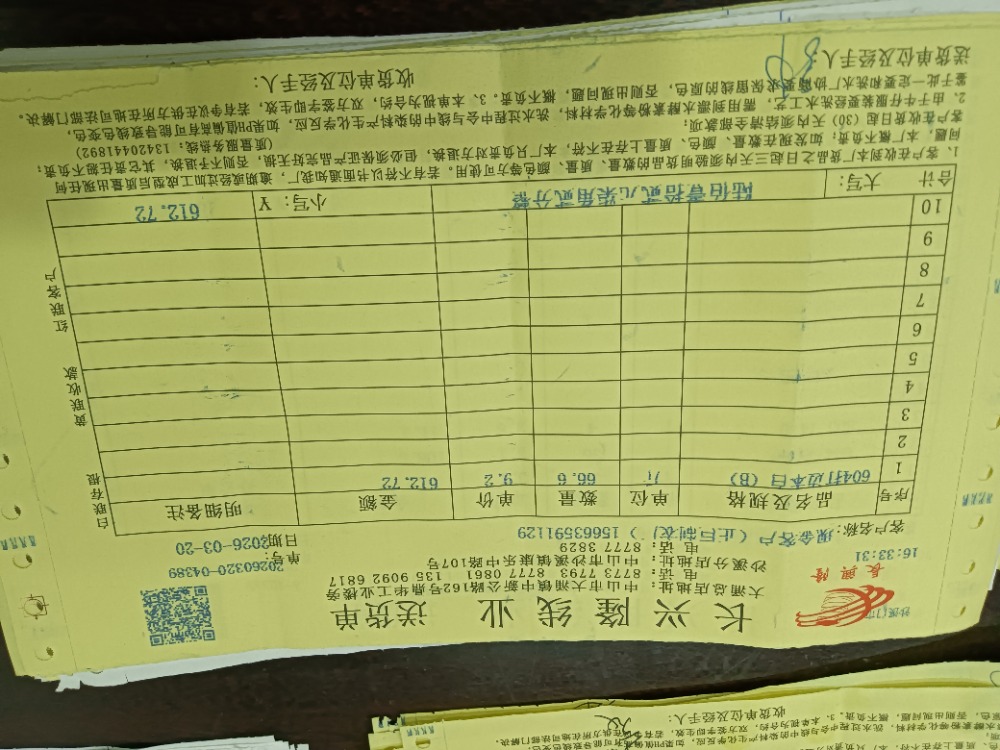 长兴隆线业 送货单
長興隆
大涌总店地址：中山市大涌镇中新公路162号鼎华工业楼旁
电话：8773 7793 8777 0861 135 9092 6817
沙溪分店地址：中山市沙溪镇康乐中路107号
电话：8777 3829
16:33:31
单号：20260320-04389
客户名称：现金客户（正巨制衣）15663591129
日期 2026-03-20
序号 品名及规格 单位 数量 单价 金额 明细备注
1 604打边本白（B） 斤 66.6 9.2 612.72
2
3
4
5
6
7
8
9
10
合计 大写：陆佰壹拾贰元柒角贰分整 小写：￥ 612.72
白联存根
黄联收款
红联客户
1、客户在收到本厂货品之日起三天内须验明货品的数量、质量、颜色等方可使用。若有不符以书面通知我厂，逾期或经过加工成型后质量出现任何
问题，本厂概不负责；如发现在数量、颜色、质量上存在不符，本厂只负责对方退换，但必须保证产品完好无损，否则不予退换，其它责任概不负责；
客户在收货日起（30）天内须结清全部款项； （质量服务热线：13420441892）
2、由于牛仔服装要经洗水工艺，需用到漂水酵素粉等化学材料，洗水过程中会与线中的染料产生化学反应，如果PH值偏高有可能导致线色变色，
鉴于此一定要和洗水厂协调要求保留线的原色，否则出现问题，概不负责。3、本单视为合约，双方签字即生效，若有争议在供方所在地司法部门解决。
送货单位及经手人： 收货单位及经手人：
收货单位及经手人：